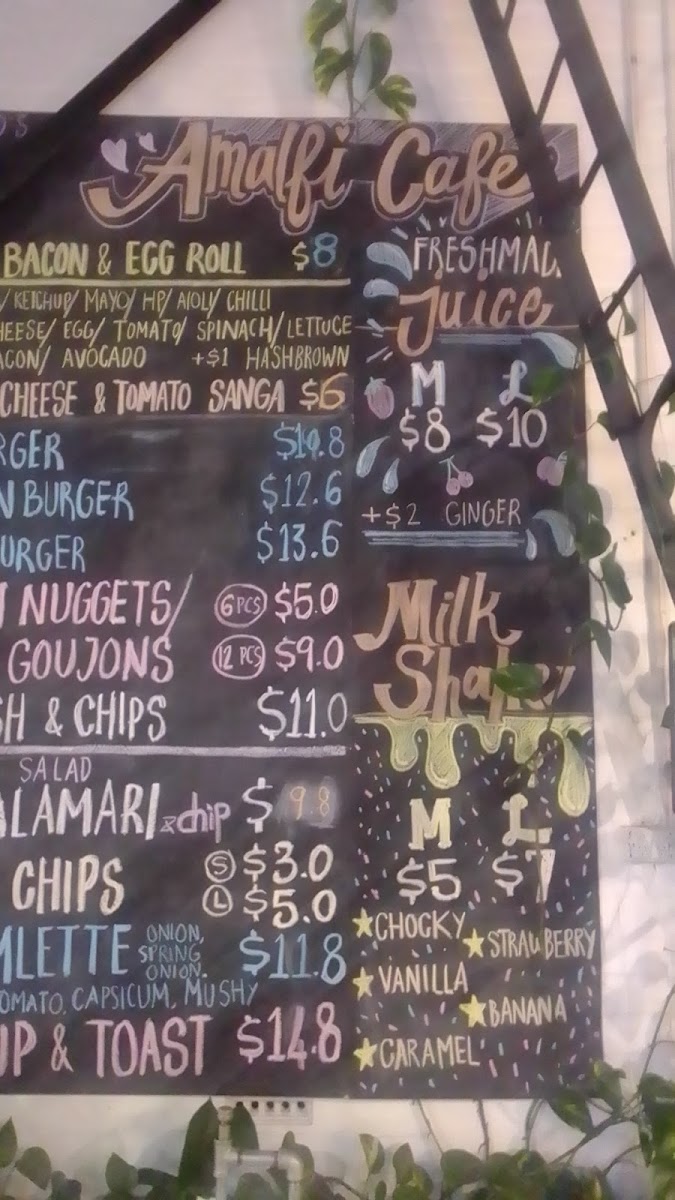 Amalfi Cafe
BACON & EGG ROLL $8
/ KETCHUP/ MAYO/ HP/ AIOLI/ CHILLI
HEESE/ EGG/ TOMATO/ SPINACH/ LETTUCE
ACON/ AVOCADO +$1 HASHBROWN
CHEESE & TOMATO SANGA $6
RGER
N BURGER $12.6
URGER $13.6
NUGGETS/ 6 PCS $5.0
GOUJONS 12 PCS $9.0
SH & CHIPS $11.0
SALAD
LAMARI & chip $9.8
CHIPS S $3.0
L $5.0
MLETTE ONION, SPRING ONION. $11.8
OMATO, CAPSICUM, MUSHY
UP & TOAST $14.8
FRESHMAD
Juice
M L
$8 $10
+$2 GINGER
Milk
Shake
M L
$5 $7
CHOCKY
STRAWBERRY
VANILLA
BANANA
CARAMEL